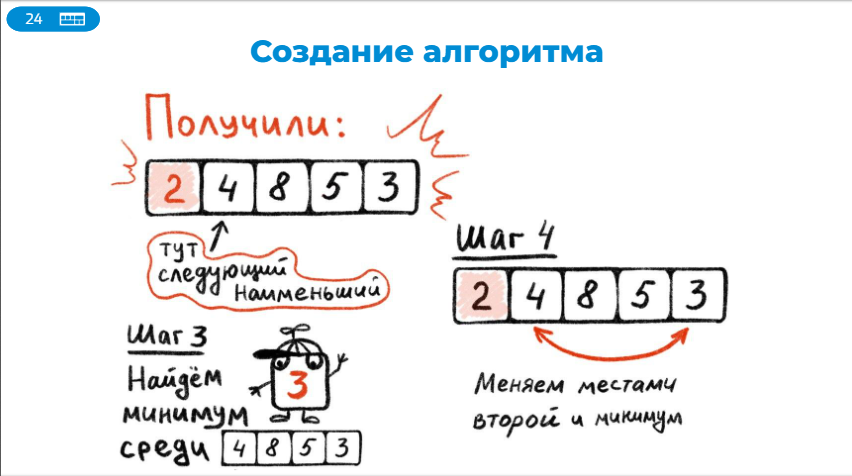 24
Создание алгоритма
Получили:
2 4 8 5 3
тут
следующий
наименьший
Шаг 3
Найдём
3
минимум
среди 4 8 5 3
Шаг 4
2 4 8 5 3
Меняем местами
второй и минимум